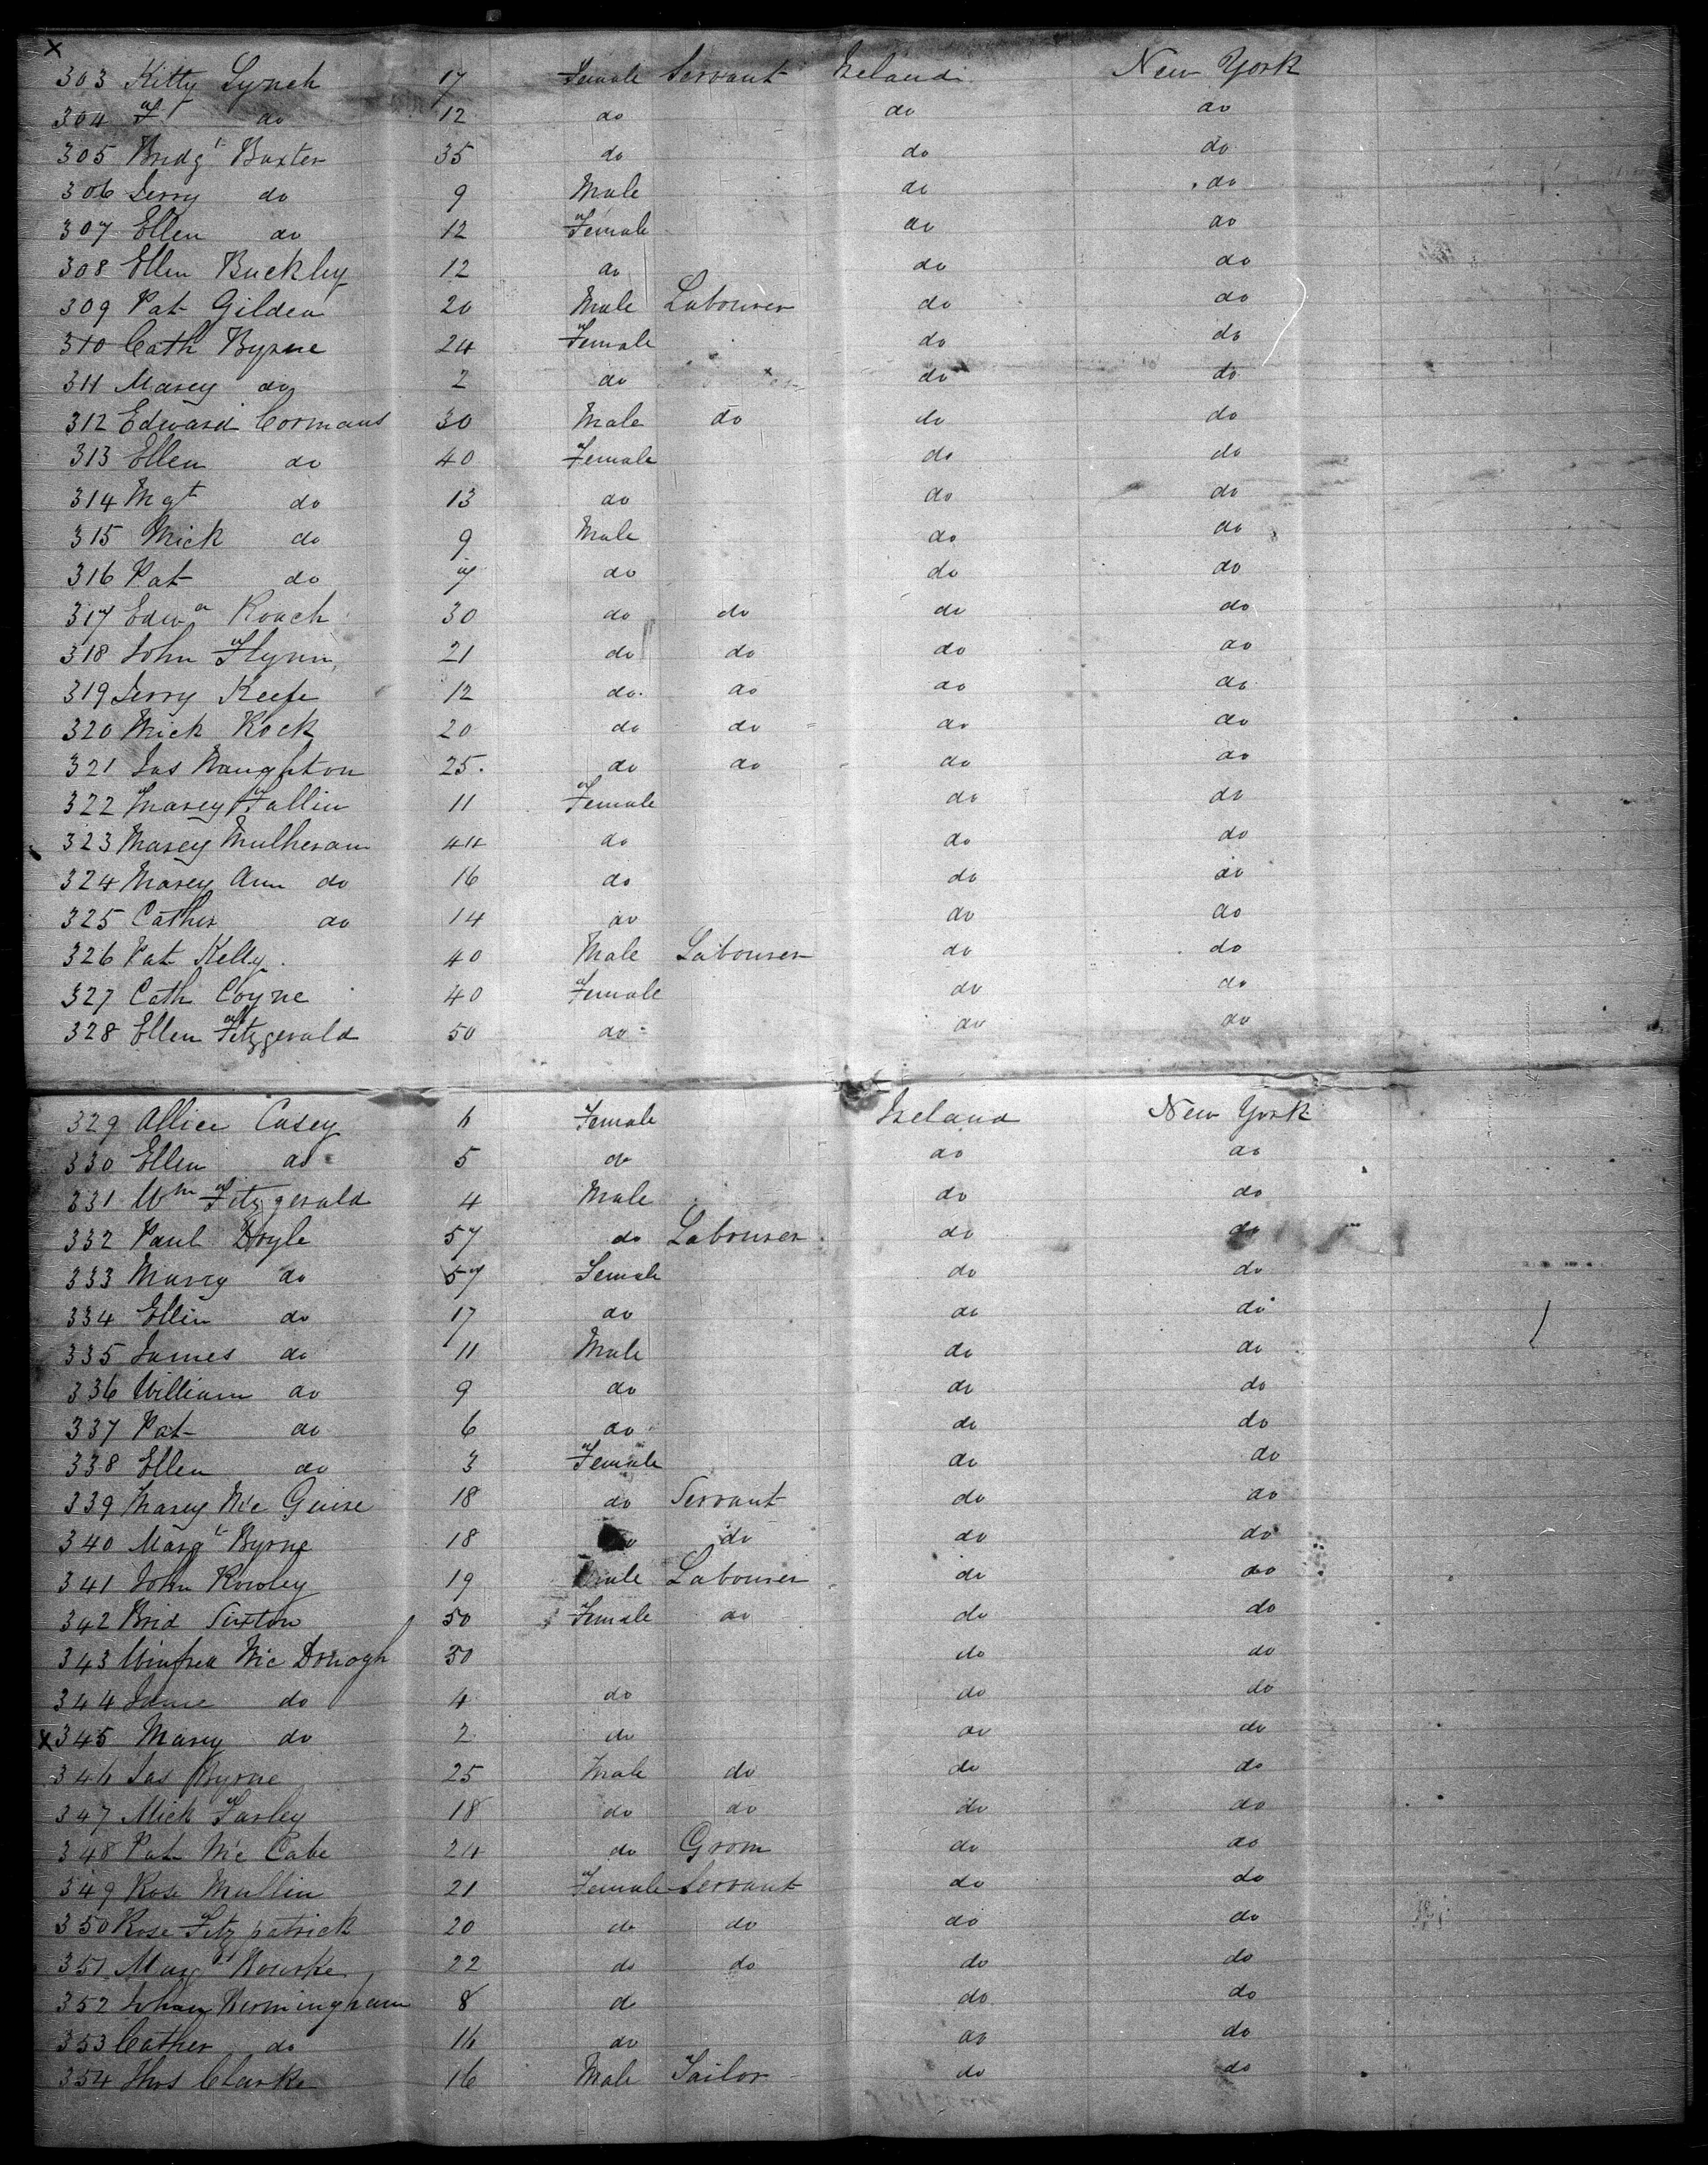 303 Kitty Lynch 17 Female Servant Ireland New York
304 F do 12 do do do
305 Bridgt Baxter 35 do do do
306 Jerry do 9 Male do do
307 Ellen do 12 Female do do
308 Ellen Buckley 12 do do do
309 Pat Gildea 20 Male Labourer do do
310 Cath Byrne 24 Female do do
311 Marey do 2 do do do
312 Edward Cormans 30 Male do do do
313 Ellen do 40 Female do do
314 Mgt do 13 do do do
315 Mick do 9 Male do do
316 Pat do 7 do do do
317 Edwd Roach 30 do do do do
318 John Flynn 21 do do do do
319 Jerry Keefe 12 do do do do
320 Mick Rock 20 do do do do
321 Jas Naughton 25 do do do do
322 Marey Fallin 11 Female do do
323 Marey Mulheran 44 do do do
324 Marey Ann do 16 do do do
325 Cather do 14 do do do
326 Pat Kelly 40 Male Labourer do do
327 Cath Coyne 40 Female do do
328 Ellen Fitzgerald 50 do do do
329 Allice Casey 6 Female Ireland New York
330 Ellen do 5 do do do
331 Wm Fitzgerald 4 Male do do
332 Paul Doyle 57 do Labourer do do
333 Marey do 57 Female do do
334 Ellin do 17 do do do
335 James do 11 Male do do
336 William do 9 do do do
337 Pat do 6 do do do
338 Ellen do 3 Female do do
339 Marey Mc Guire 18 do Servant do do
340 Margt Byrne 18 do do do
341 John Rowley 19 Male Labourer do do
342 Brid Sixton 50 Female do do do
343 Winfred Mc Donogh 30 do do
344 Jane do 4 do do do
x 345 Marey do 2 do do do
346 Jas Byrne 25 Male do do do
347 Mick Farley 18 do do do do
348 Pat Mc Cabe 24 do Groom do do
349 Rose Mullin 21 Female Servant do do
350 Rose Fitzpatrick 20 do do do do
351 Margt Rourke 22 do do do do
352 Johan Bermingham 8 do do do
353 Cather do 16 do do do
354 Thos Clarke 16 Male Tailor do do